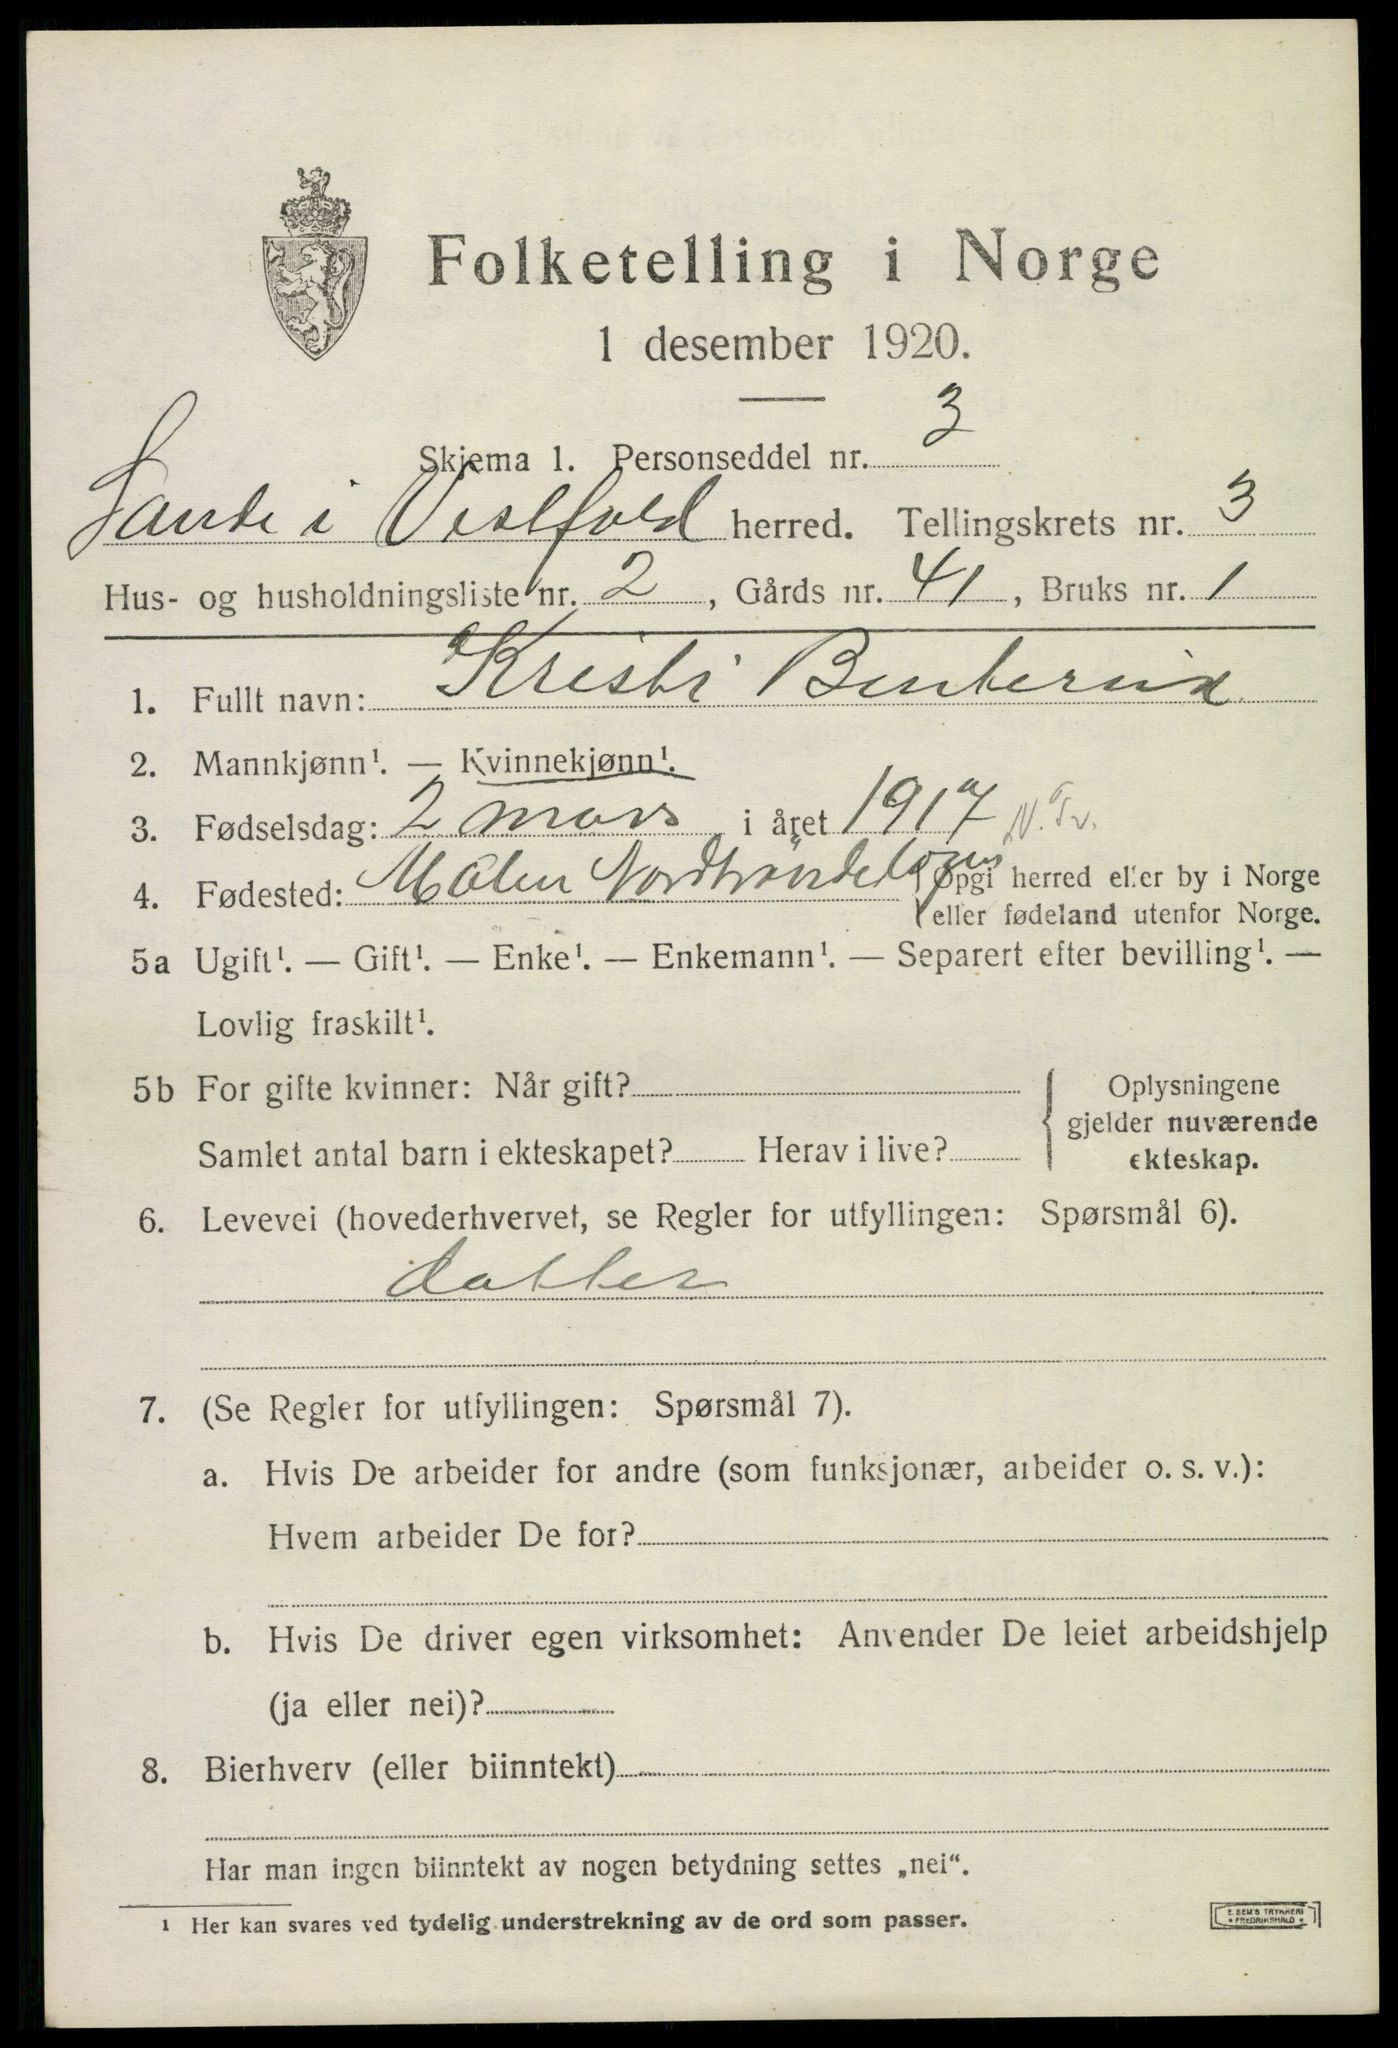 Folketelling i Norge
1 desember 1920.
Skjema 1. Personseddel nr. 3
Sande i Vestfold herred. Tellingskrets nr. 3
Hus- og husholdningsliste nr. 2, Gårds nr. 41, Bruks nr. 1
1. Fullt navn: Kristi
2. Mannkjønn¹. — Kvinnekjønn¹.
3. Fødselsdag: 2 mars i året 1917 N. Tr.
4. Fødested: Nordtrøndelagen { Opgi herred eller by i Norge
eller fødeland utenfor Norge.
5a Ugift¹. — Gift¹. — Enke¹. — Enkemann¹. — Separert efter bevilling¹. —
Lovlig fraskilt¹.
5b For gifte kvinner: Når gift?
Samlet antal barn i ekteskapet? Herav i live?
{ Oplysningene
gjelder nuværende
ekteskap.
6. Levevei (hovederhvervet, se Regler for utfyllingen: Spørsmål 6).
datter
7. (Se Regler for utfyllingen: Spørsmål 7).
a. Hvis De arbeider for andre (som funksjonær, arbeider o. s. v.):
Hvem arbeider De for?
b. Hvis De driver egen virksomhet: Anvender De leiet arbeidshjelp
(ja eller nei)?
8. Bierhverv (eller biinntekt)
Har man ingen biinntekt av nogen betydning settes „nei“.
1 Her kan svares ved tydelig understrekning av de ord som passer.
E. SEM'S TRYKKERI
* FREDRIKSHALD *